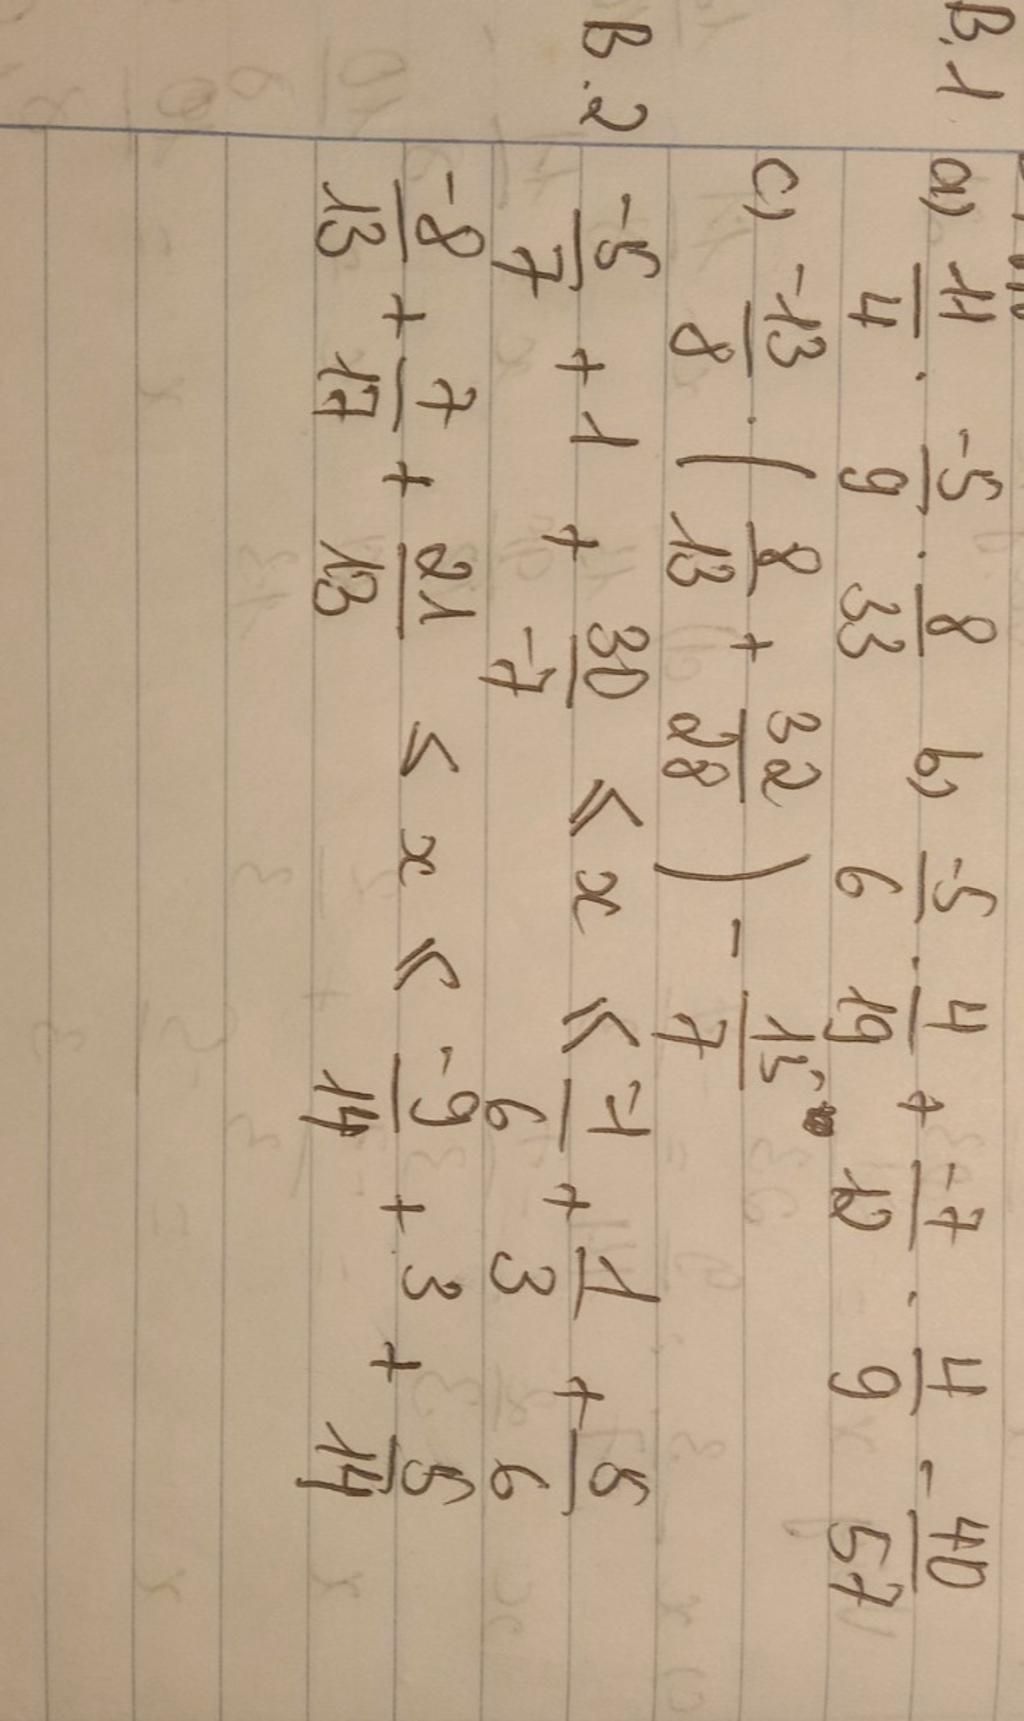 B.1 a) 11/4 . -5/9 . 8/33 b) -5/6 . 4/19 + -7/12 . 4/9 - 40/57
c) -13/8 . ( 8/13 + 32/28 ) - 15/7
B.2 -5/7 + 1 + 30/-7 ≤ x ≤ -1/6 + 1/3 + 5/6
-8/13 + 7/17 + 21/13 ≤ x ≤ -9/14 + 3 + 5/14